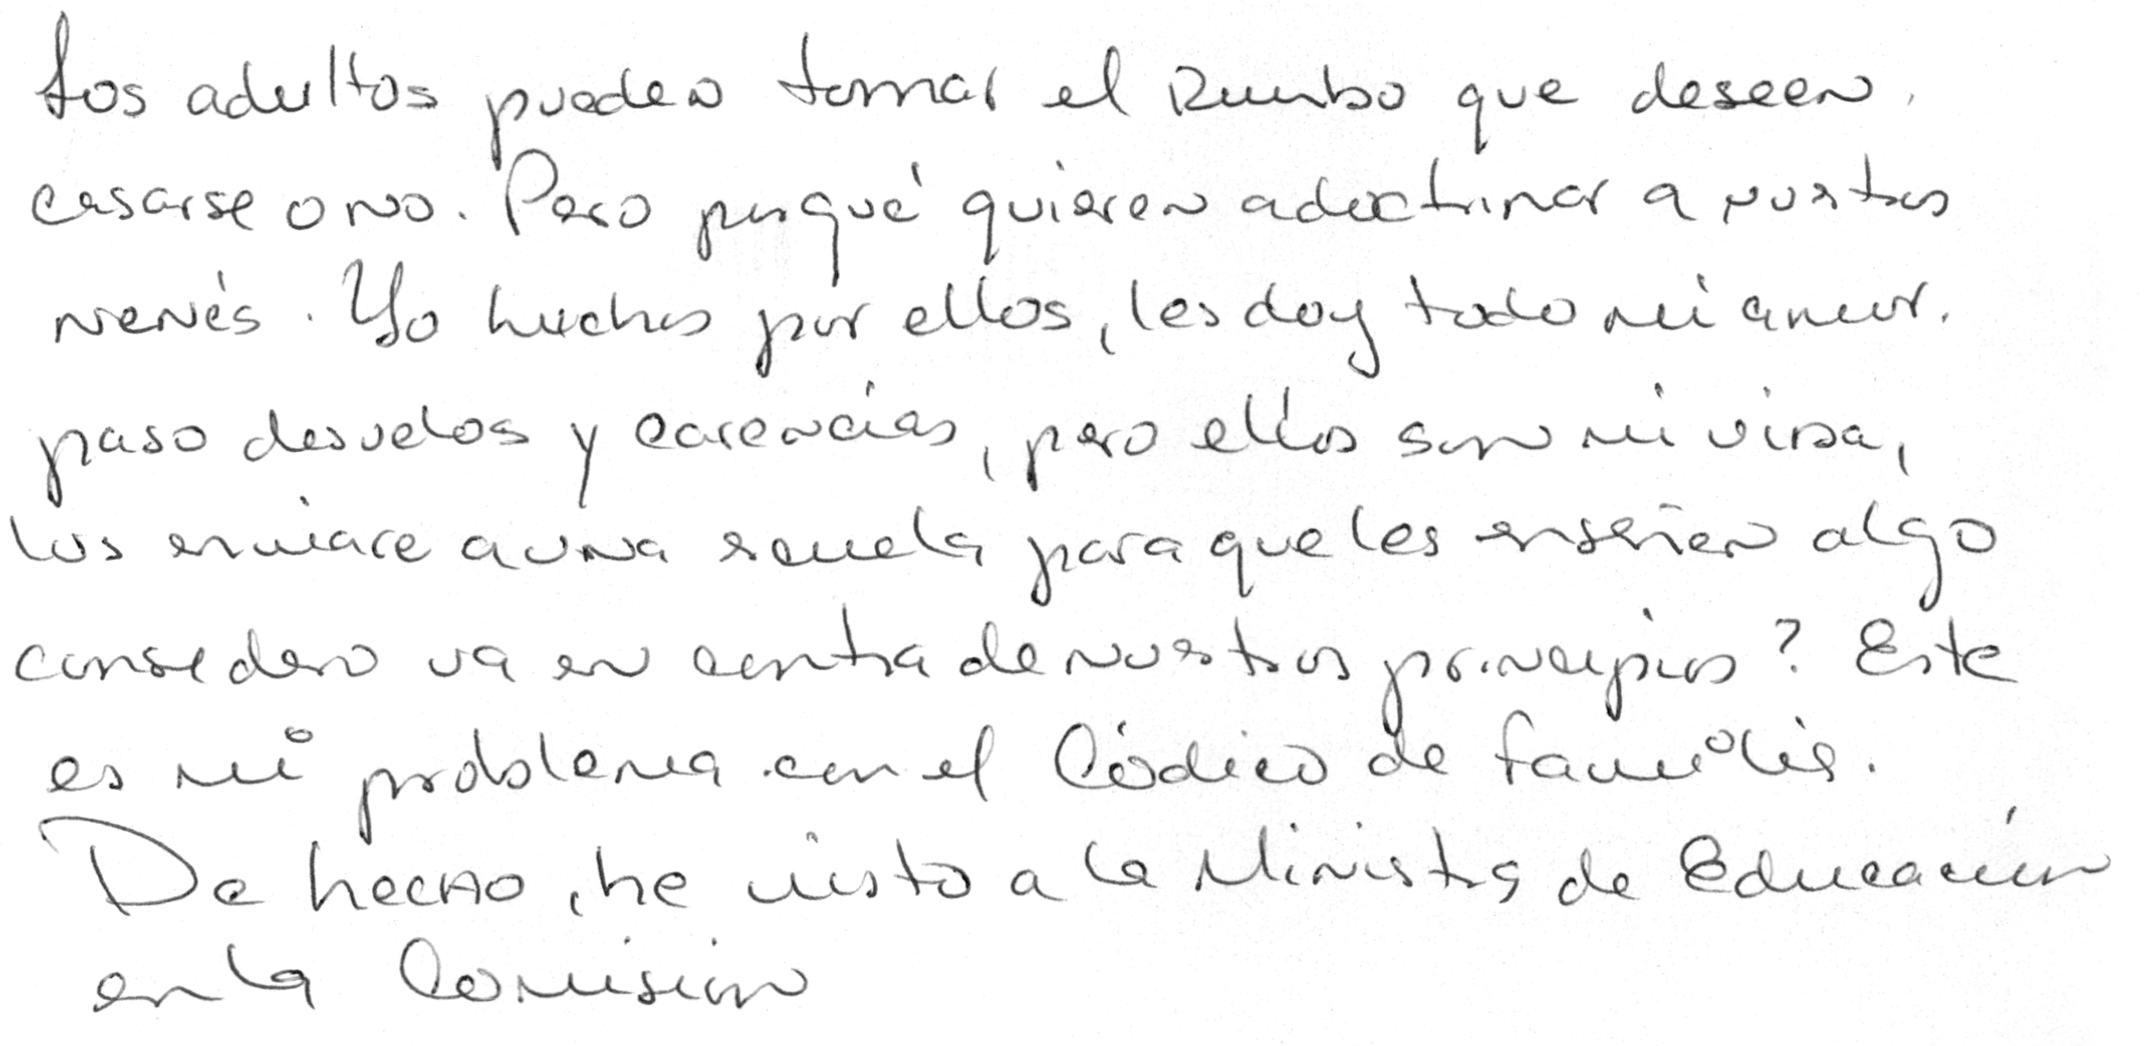 Los adultos pueden tomar el rumbo que deseen.
casarse o no. Pero porqué quieren adoctrinar a nustros
nenés. Yo lucho por ellos, les doy todo mi amor.
paso desvelos y carencias, pero ellos son mi vida,
los enviare a una escuela para que les enseñen algo
considero va en contra de nuestros principios? Este
es mi problema con el Códico de familia.
De hecho, he visto a la Ministra de Educación
en la Comisión